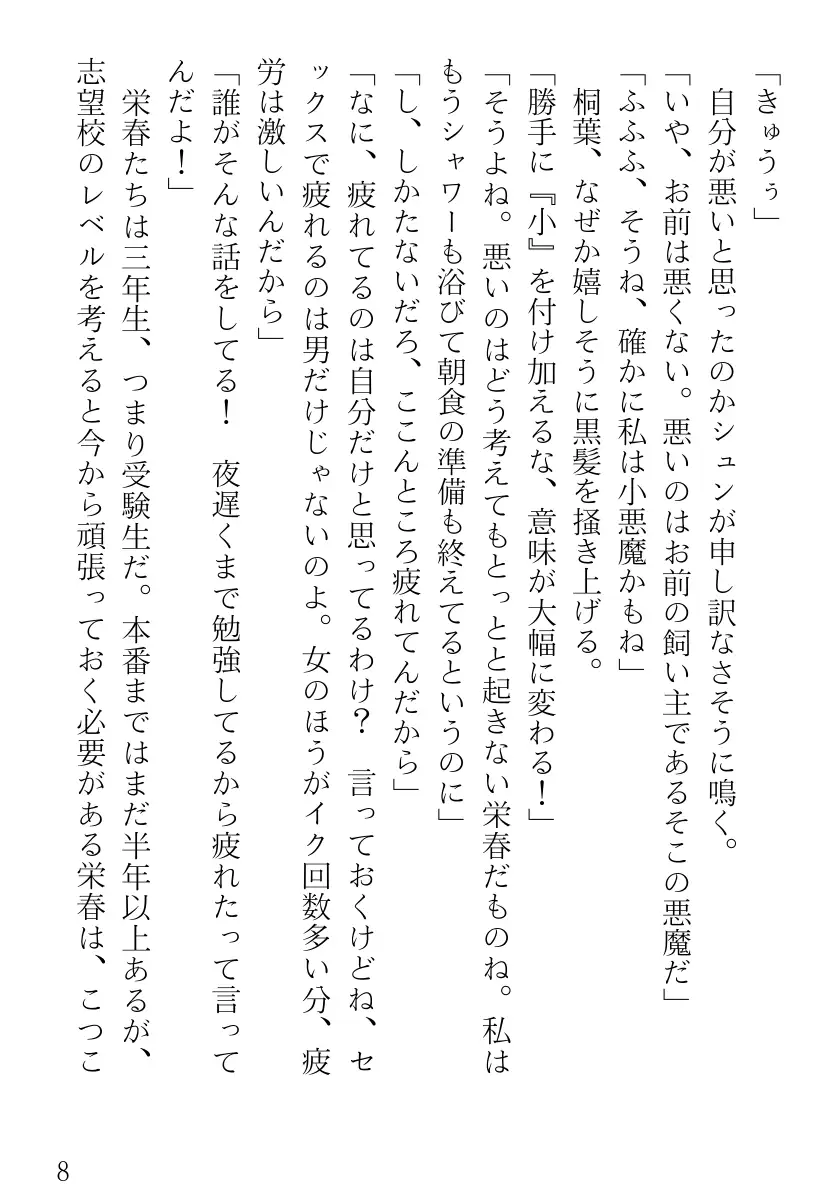 「きゅうぅ」
　自分が悪いと思ったのかシュンが申し訳なさそうに鳴く。
「いや、お前は悪くない。悪いのはお前の飼い主であるそこの悪魔だ」
「ふふふ、そうね、確かに私は小悪魔かもね」
　桐葉、なぜか嬉しそうに黒髪を掻き上げる。
「勝手に『小』を付け加えるな、意味が大幅に変わる！」
「そうよね。悪いのはどう考えてもとっとと起きない栄春だものね。私は
もうシャワーも浴びて朝食の準備も終えてるというのに」
「し、しかたないだろ、ここんところ疲れてんだから」
「なに、疲れてるのは自分だけと思ってるわけ？　言っておくけどね、セ
ックスで疲れるのは男だけじゃないのよ。女のほうがイク回数多い分、疲
労は激しいんだから」
「誰がそんな話をしてる！　夜遅くまで勉強してるから疲れたって言って
んだよ！」
　栄春たちは三年生、つまり受験生だ。本番まではまだ半年以上あるが、
志望校のレベルを考えると今から頑張っておく必要がある栄春は、こつこ
8